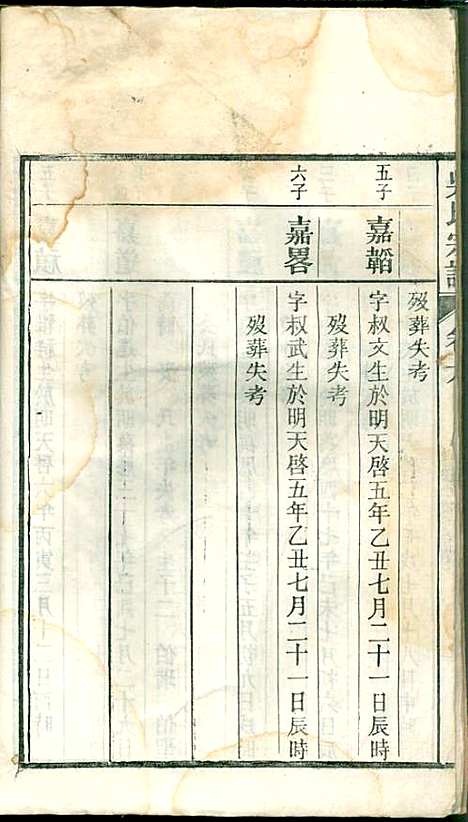 吳氏宗譜
卷六
歿葬失考
五子
嘉韜
字叔文生於明天啓五年乙丑七月二十一日辰時
歿葬失考
六子
嘉畧
字叔武生於明天啓五年乙丑七月二十一日辰時
歿葬失考